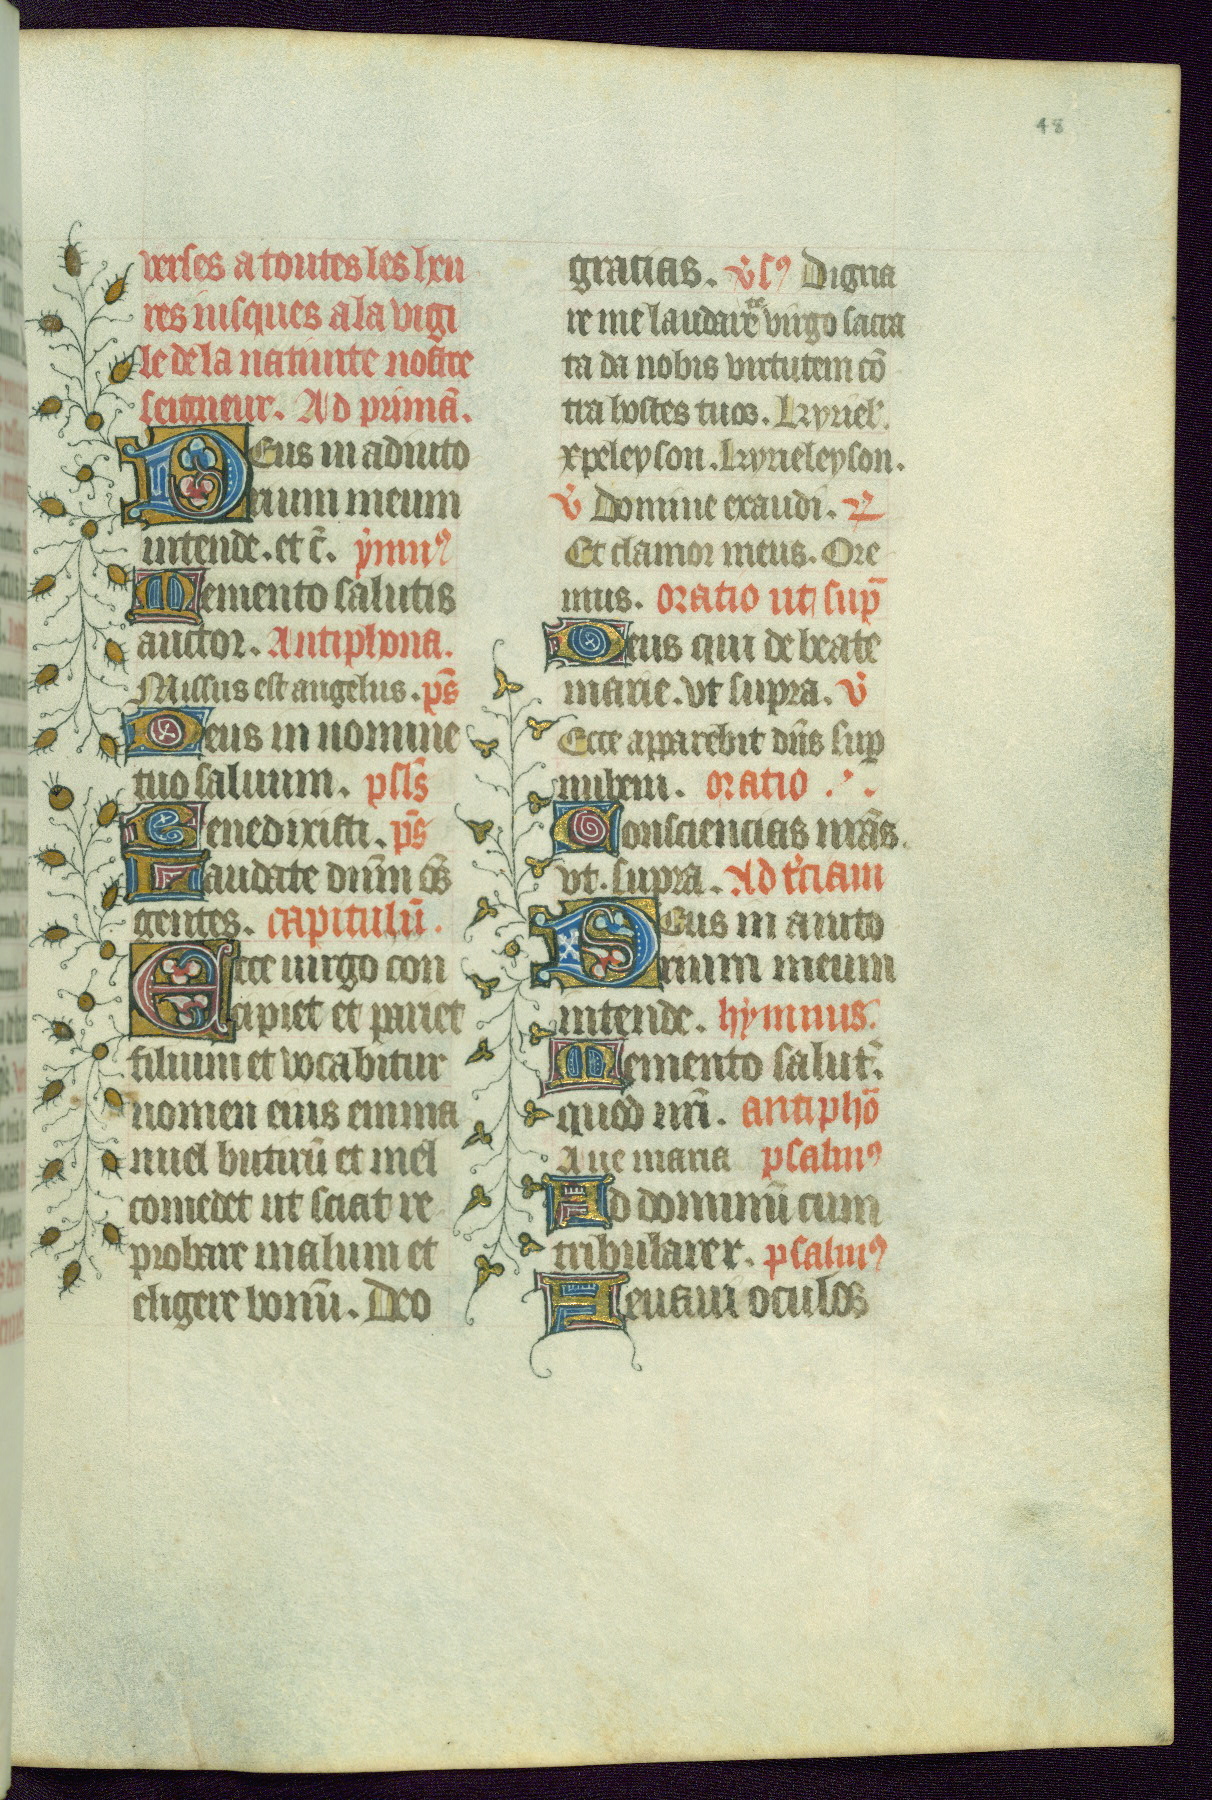 48
verses a toutes les heu
res iusques a la vigi
le de la natiuite nostre
seigneur. Ad primā.
Deus in adiuto
rium meum
intende. et c̄. ymnꝰ
Memento salutis
auctor. Antiphona.
Missus est angelus. ps̄
Deus in nomine
tuo saluum. psl̄s
Benedixisti. ps̄
Laudate dn̄m om̄s
gentes. capitulū.
Ecce uirgo con
cipiet et pariet
filium et vocabitur
nomen eius emma
nuel butirū et mel
comedet ut sciat re
probare malum et
eligere bonū. Deo
gracias. v̄sꝰ Digna
re me laudare te virgo sacra
ta da nobis virtutem cō
tra hostes tuos. Kyriel'.
xp̄eleyson. Kyrieleyson.
v̄ Domine exaudi. ꝶ
Et clamor meus. Ore
mus. oratio ut sup̄
Deus qui de beate
marie. vt supra. v̄
Ecce apparebit dn̄s suꝑ
nubem. oratio
Consciencias nr̄as.
vt. supra. Ad t'ciam
Deus in aiuto
rium meum
intende. hymnus.
Memento salut'.
quod nr̄i. antiphō
Aue maria psalmꝰ
Ad dominū cum
tribularer. psalmꝰ
Leuaui oculos